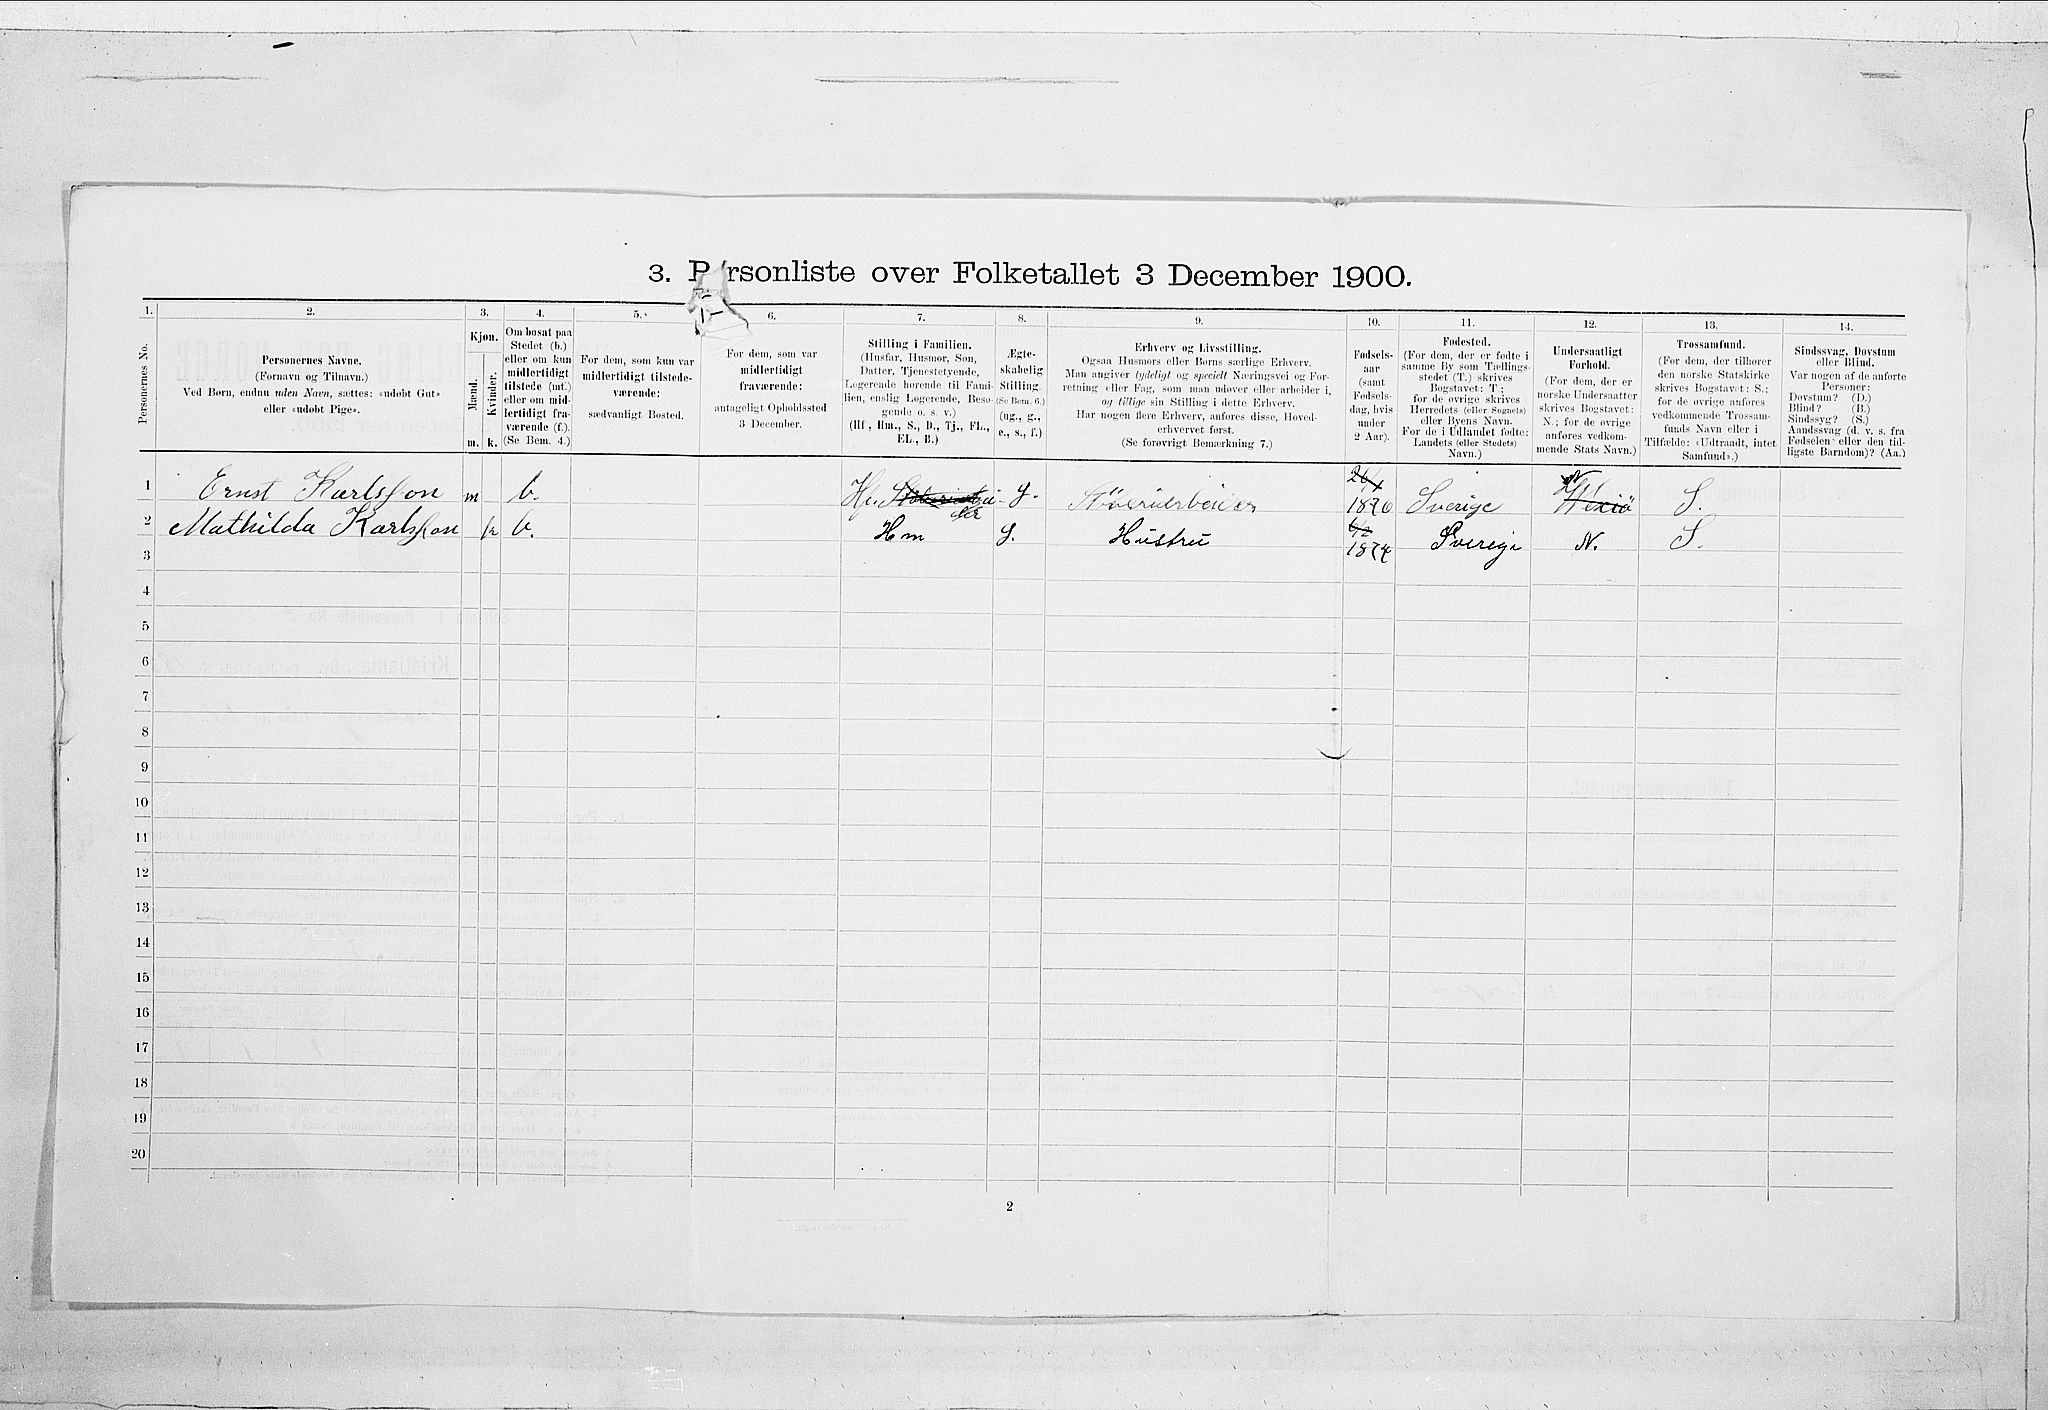 3. Personliste over Folketallet 3 December 1900.
1. 2. 3. 4. 5. 6. 7. 8. 9. 10. 11. 12. 13. 14.
Personernes No.
Personernes Navne.
(Fornavn og Tilnavn.)
Ved Børn, endnu uden Navn, sættes: «udøbt Gut»
eller «udøbt Pige».
Kjøn.
Mænd.
Kvinder.
m. k.
Om bosat paa
Stedet (b.)
eller om kun
midlertidigt
tilstede (mt.)
eller om mid-
lertidigt fra-
værende (f.).
(Se Bem. 4.)
For dem, som kun var
midlertidigt tilstede-
værende:
sædvanligt Bosted.
For dem, som var
midlertidigt
fraværende:
antageligt Opholdssted
3 December.
Stilling i Familien.
(Husfar, Husmor, Søn,
Datter, Tjenestetyende,
Logerende hørende til Fami-
lien, enslig Logerende, Besø-
gende o. s. v.)
(Hf., Hm., S., D., Tj., FL.,
EL., B.)
Ægte-
skabelig
Stilling.
(Se Bem. 6.)
(ug., g.,
e., s., f.)
Erhverv og Livsstilling.
Ogsaa Husmors eller Børns særlige Erhverv.
Man angiver tydeligt og specielt Næringsvei og For-
retning eller Fag, som man udøver eller arbeider i,
og tillige sin Stilling i dette Erhverv.
Har nogen flere Erhverv, anføres disse, Hoved-
erhvervet først.
(Se forøvrigt Bemærkning 7.)
Fødsels-
aar
(samt
Fødsels-
dag, hvis
under
2 Aar).
Fødested.
(For dem, der er fødte i
samme By som Tællings-
stedet (T.) skrives
Bogstavet: T.;
for de øvrige skrives
Herredets (eller Sognets)
eller Byens Navn.
For de i Udlandet fødte:
Landets (eller Stedets)
Navn.)
Undersaatligt
Forhold.
(For dem, der er
norske Undersaatter
skrives Bogstavet:
N.; for de øvrige
anføres vedkom-
mende Stats Navn.)
Trossamfund.
(For dem, der tilhører
den norske Statskirke
skrives Bogstavet: S.;
for de øvrige anføres
vedkommende Trossam-
funds Navn eller i
Tilfælde: «Udtraadt, intet
Samfund».)
Sindssvag, Døvstum
eller Blind.
Var nogen af de anførte
Personer:
Døvstum? (D.)
Blind? (B.)
Sindssyg? (S.)
Aandssvag (d. v. s. fra
Fødselen eller den tid-
ligste Barndom)? (Aa.)
1 Ernst Karlsson m b. Hf. g. Støveriarbeider 26/4 1876 Sverige N S.
2 Mathilda Karlsson k b. Hm g. Hustru 6/2 1874 Sverige N. S.
3
4
5
6
7
8
9
10
11
12
13
14
15
16
17
18
19
20
2